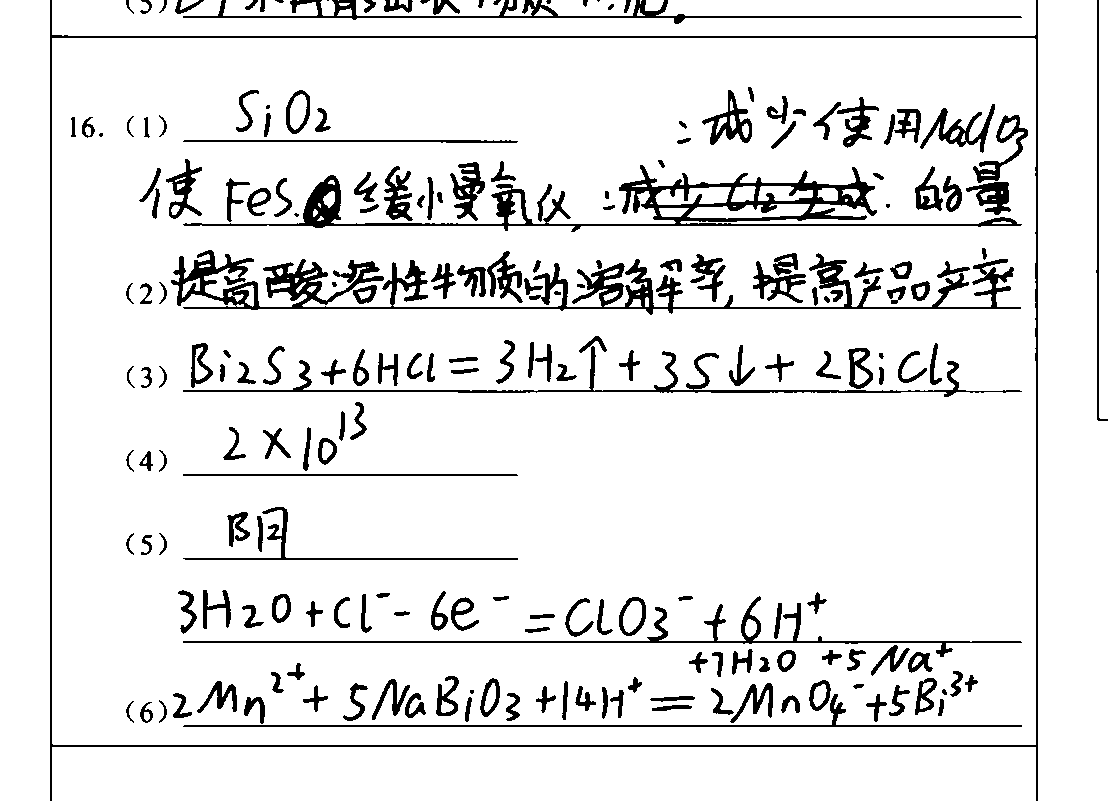 16. (1) SiO2
:减少使用NaClO3
使FeS.缓慢氧化,的量
(2) 提高酸溶性物质的溶解率,提高产品产率
(3) Bi2S3+6HCl=3H2↑+3S↓+2BiCl3
(4) 2×10^13
(5) 阴
3H2O+Cl^- - 6e^- = ClO3^- + 6H^+.
+7H2O +5Na^+
(6) 2Mn^2+ + 5NaBiO3+14H^+ = 2MnO4^- +5Bi^3+